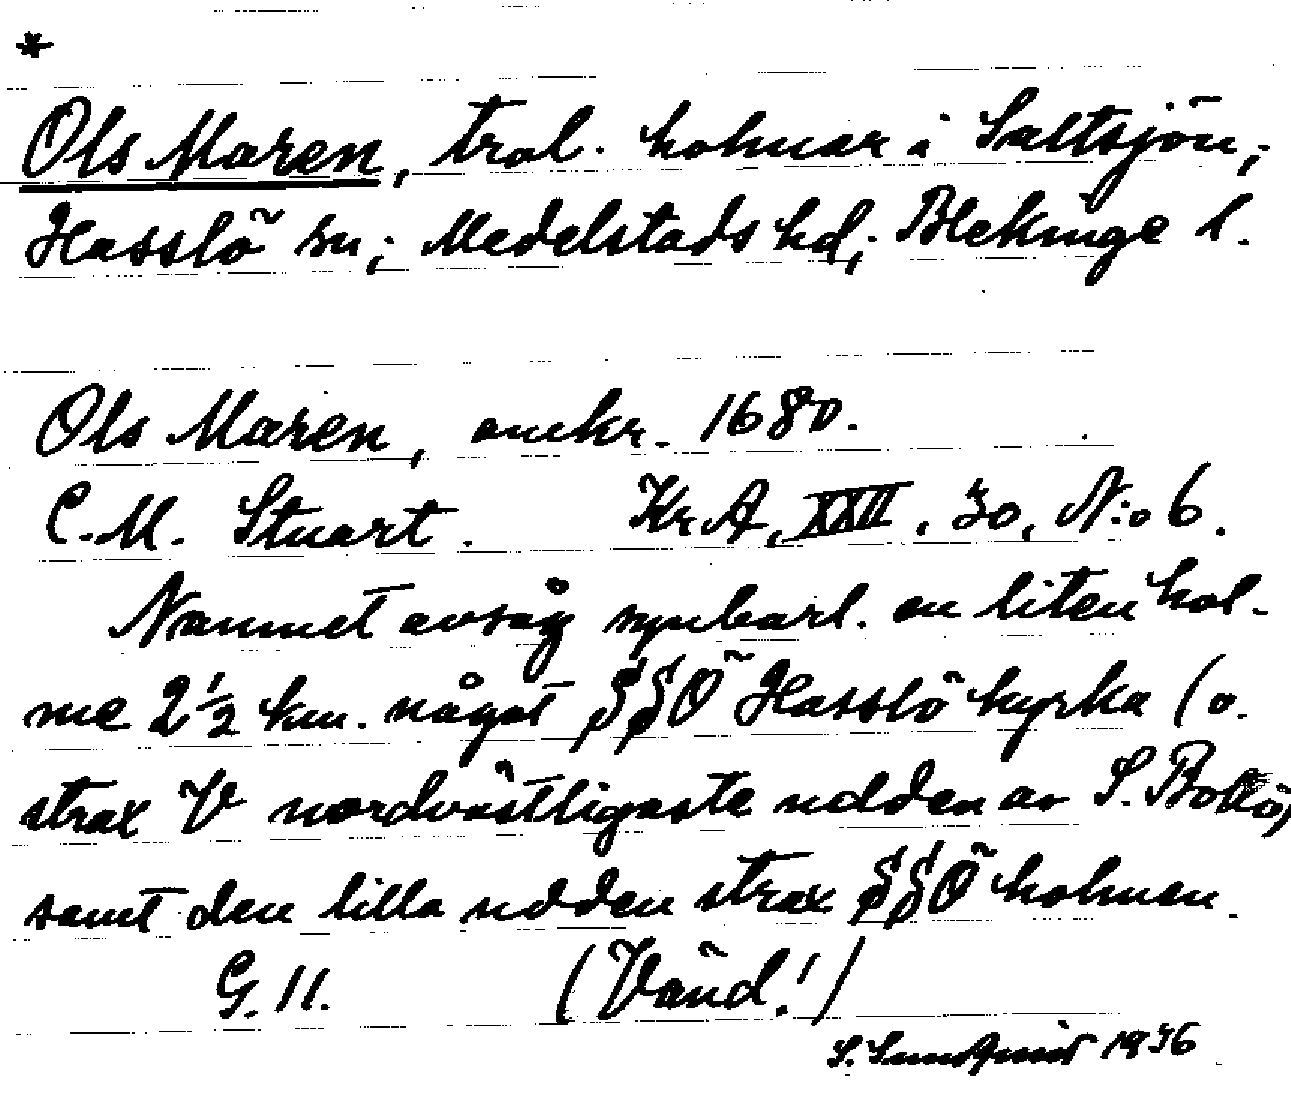 *
Ols Maren, trol. holmar i Saltsjön,
Hasslö sn; Medelstads hd; Blekinge l.
Ols Maren, omkr. 1680.
C.M. Stuart. Kr.A, XXII, 30, N:o 6.
Namnet avsåg synbarl. en liten hol-
me 2 1/2 km. något SSÖ Hasslö kyrka (o.
strax V nordvästligaste udden av S. Bokö,
samt den lilla udden strax SSÖ holmen.
G. 11. (Vänd!)
S. Sundquist 1936